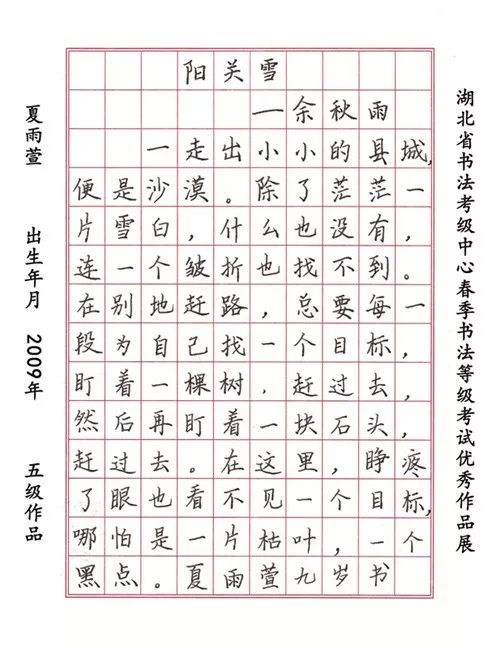 阳关雪
——余秋雨
一走出小小的县城，
便是沙漠。除了茫茫一
片雪白，什么也没有，
连一个皱折也找不到。
在别地赶路，总要每一
段为自己找一个目标，
盯着一棵树，赶过去，
然后再盯着一块石头，
赶过去。在这里，睁疼
了眼也看不见一个目标，
哪怕是一片枯叶，一个
黑点。夏雨萱九岁书
湖北省书法考级中心春季书法等级考试优秀作品展
夏雨萱 出生年月 2009年 五级作品